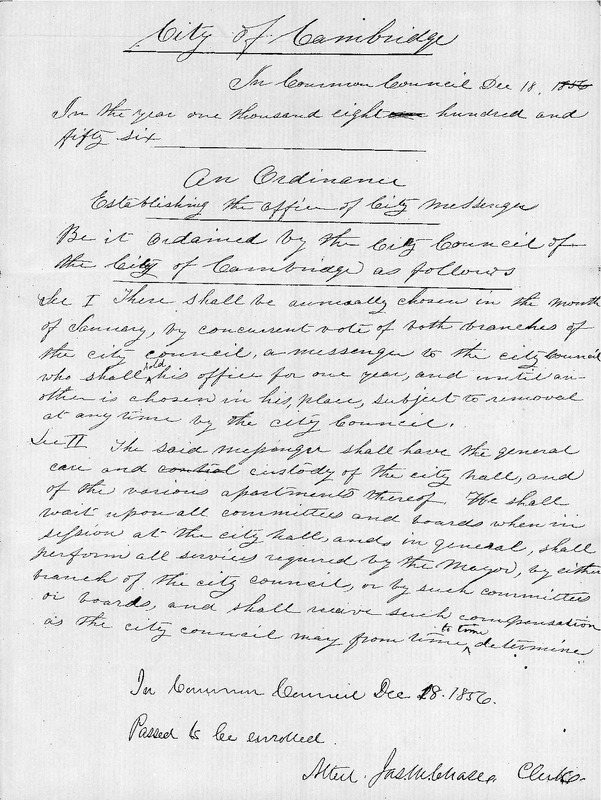 City of Cambridge
In Common Council Dec 18. 1856
In the year one thousand eight one hundred and
fifty six
An Ordinance
Establishing the office of City Messenger
Be it Ordained by the City Council of
the City of Cambridge as follows
Sec I There shall be annually chosen in the month
of January, by concurrent vote of both branches of
the city council, a messenger to the city Council
who shall hold his office for one year, and until an-
other is chosen in his, place, subject to removal
at any time by the city Council.
Sec II The said messenger shall have the general
care and control custody of the city hall, and
of the various apartments thereof. He shall
wait upon all committees and boards when in
session at the city hall, and in general, shall
perform all services required by the Mayor, by either
branch of the city council, or by such committees
or boards, and shall receive such compensation
as the city council may from time to time determine
In Common Council Dec 18. 1856.
Passed to be enrolled.
Attest. Clerk